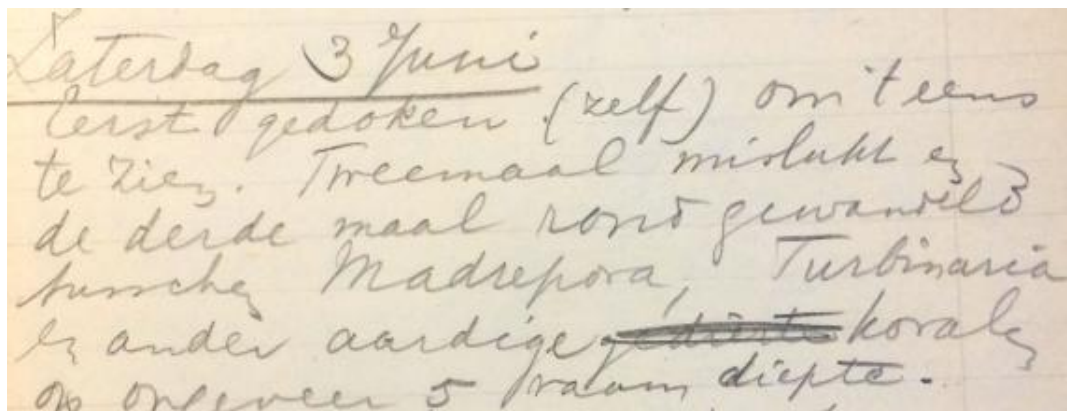 Zaterdag 3 Juni
Eerst gedoken (zelf) om 't eens
te zien. Tweemaal mislukt en
de derde maal rond gewandeld
tusschen Madrepora, Turbinaria
en ander aardige gedierte koralen
op ongeveer 5 vaam diepte.